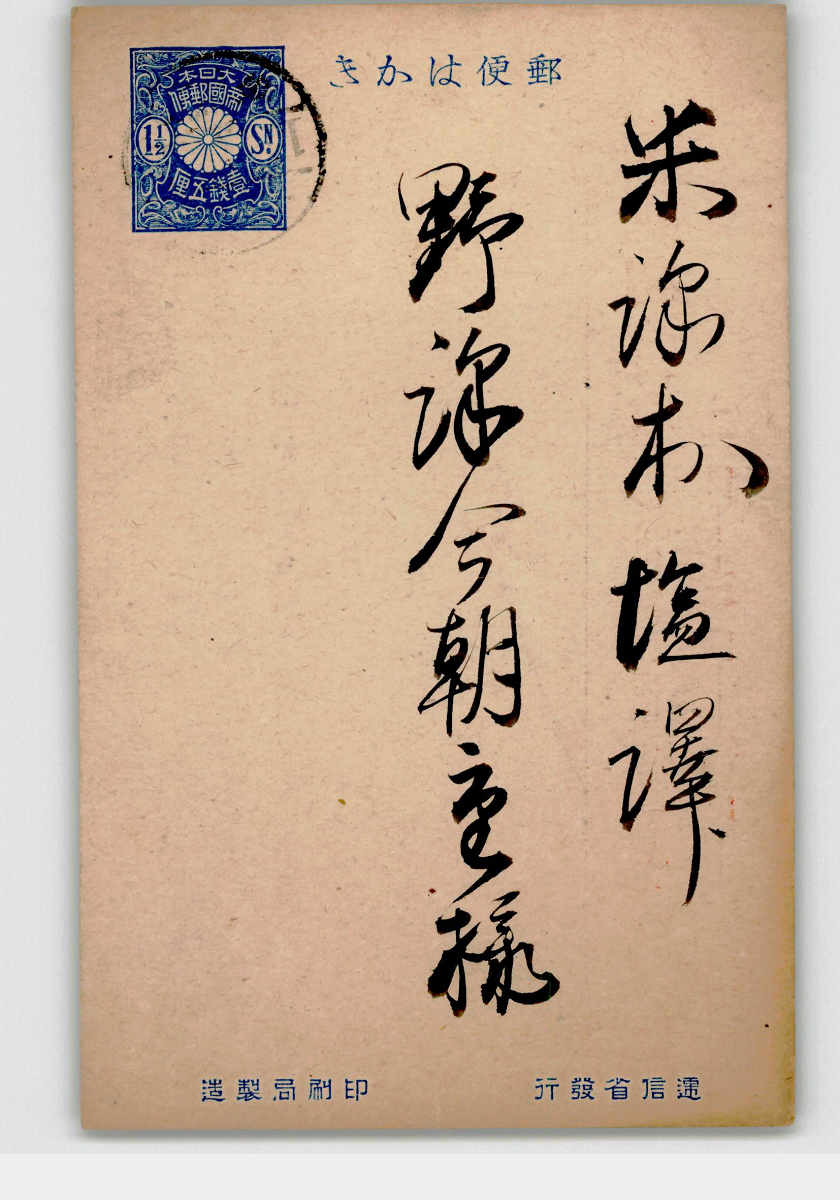 郵便はかき
大日本
帝國郵便
1½ SN.
壹錢五厘
米澤村塩澤
野澤今朝重様
遞信省發行
印刷局製造